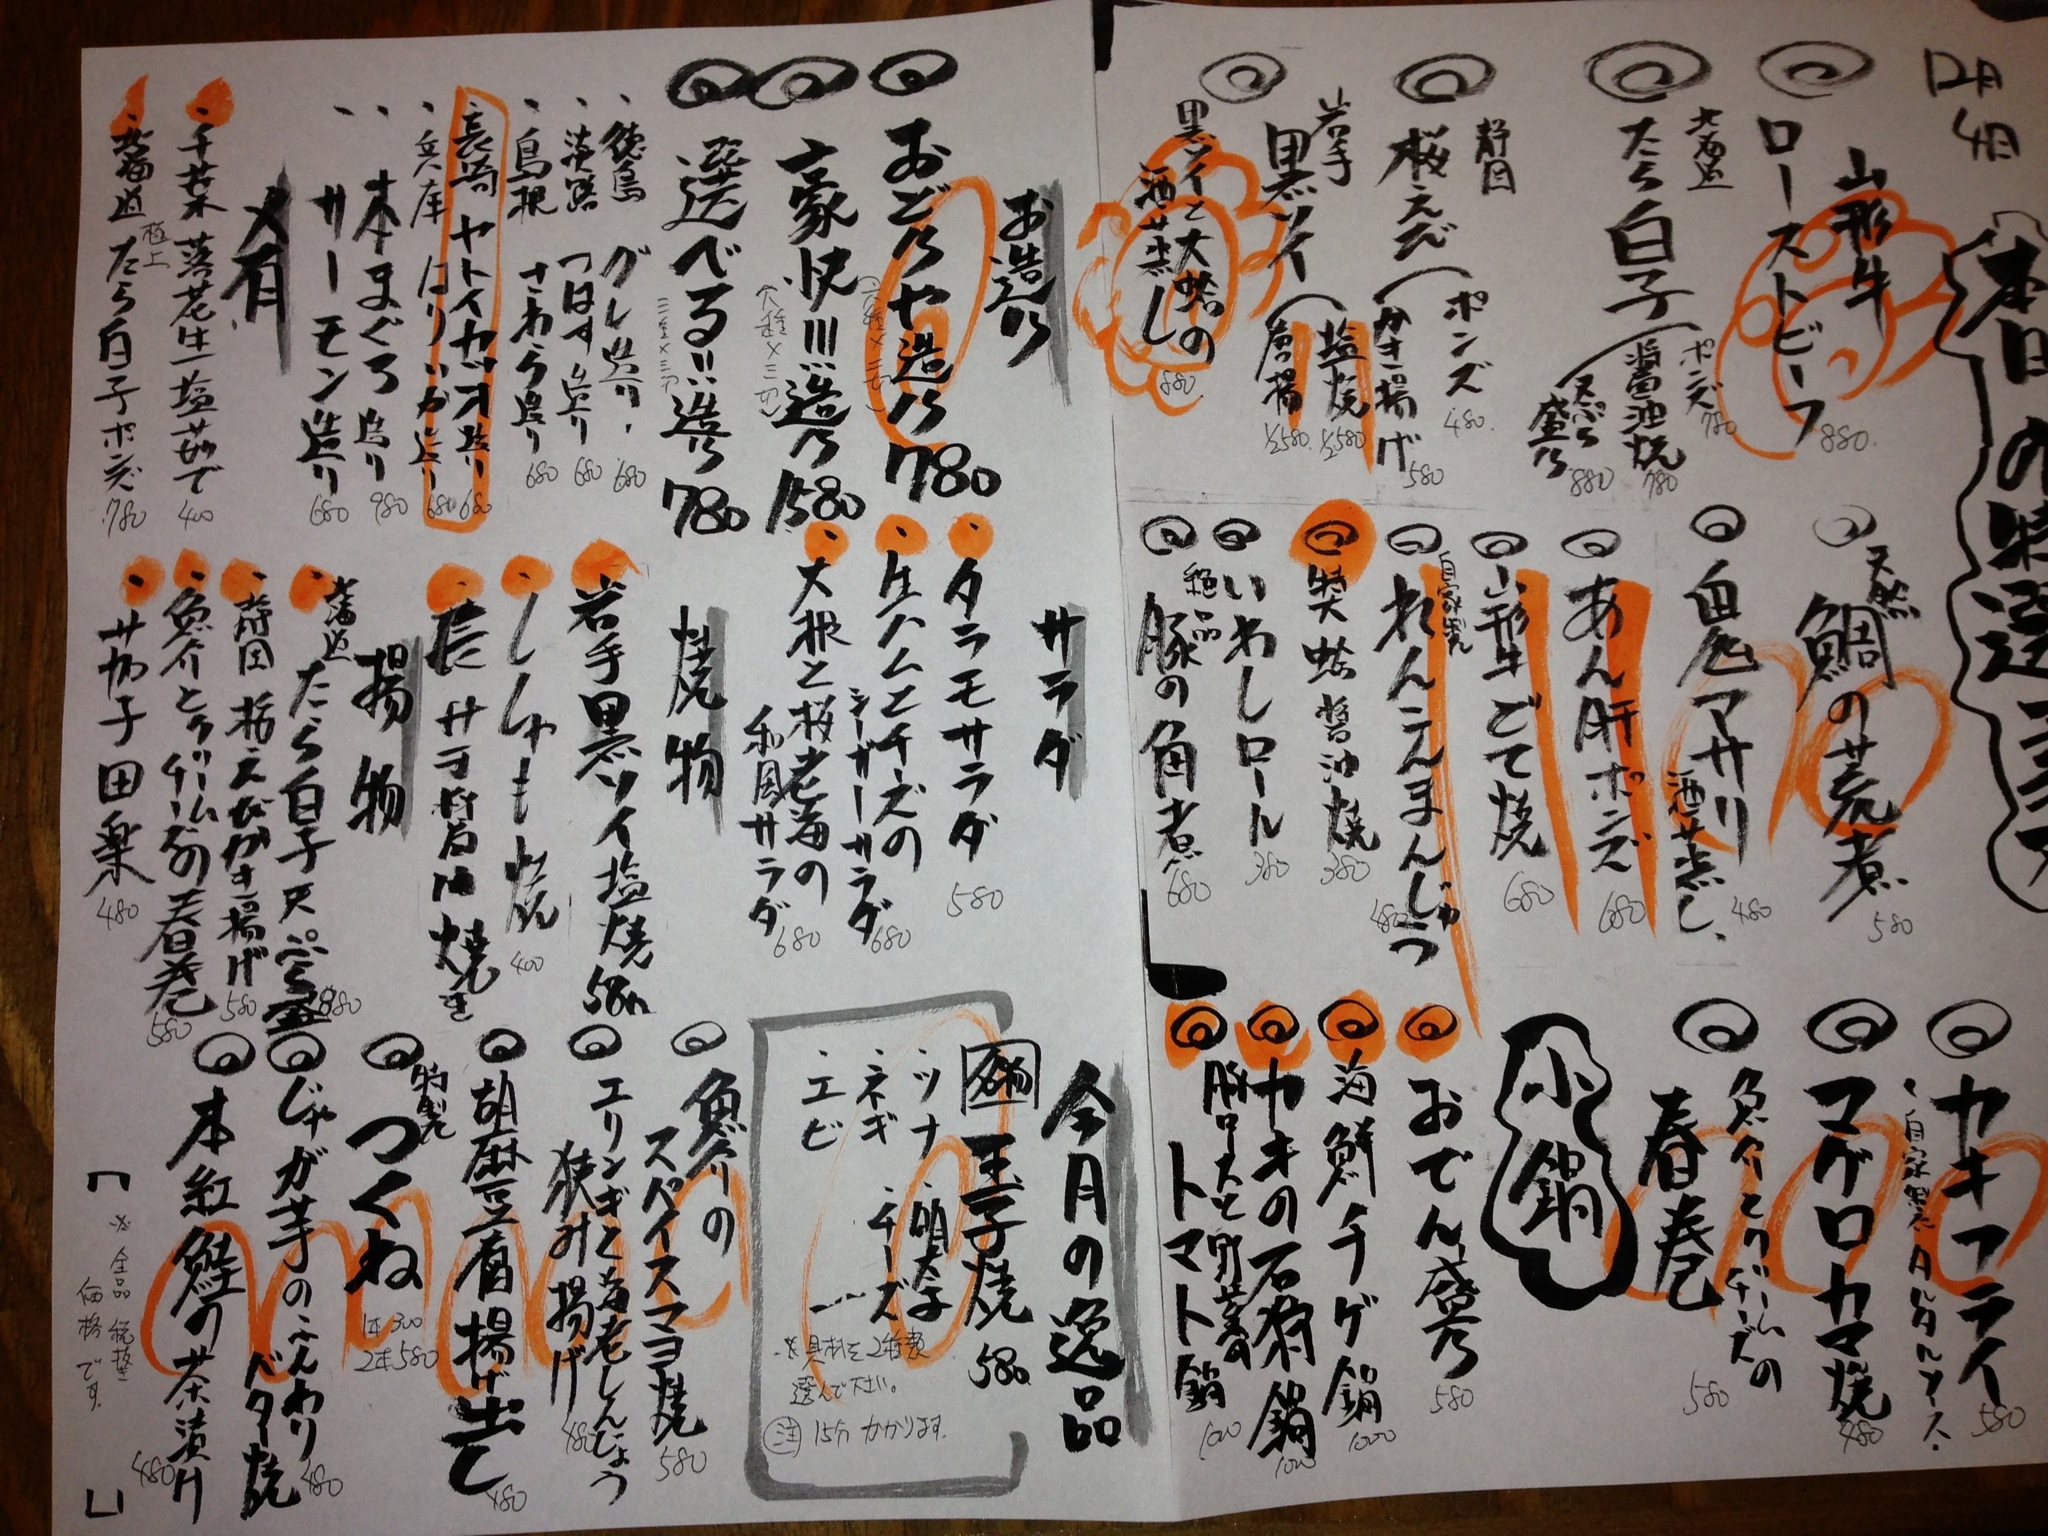 12月
4日
本日の特選
山形牛
ローストビーフ
880.
北海道
たら白子
ポンズ
780
醤油焼
780
天ぷら盛り
880
静岡
桜えび
ポンズ
480.
かき揚げ
580
岩手
黒ソイ
塩焼
1/2 580
唐揚
1/2 580.
黒ソイと大蛤の
酒蒸し
880.
天然
鯛の荒煮
580
白魚マサリ
酒蒸し、
480
あん肝ポンズ
680
山形牛どて焼
680
自家製
れんこんまんじゅう
480
特大蛤醤油焼
380
いわしロール
380
絶品
豚の角煮
680
カキフライ
自家製タルタルソース・
580
マグロカマ焼
480
魚介とクリームチーズの
春巻
580
小鍋
おでん盛り
580
海鮮チゲ鍋
1000
カキの石狩鍋
1000
豚ロースと野菜の
トマト鍋
1000
お造り
おどりや造り 780
(六種×二切)
豪快!!!造り 1580
(八種×三切)
選べる!!造り 780
三種×三切
・徳島 グレ造り
680
・淡路 つばす造り
680
・島根 さわら造り
680
・長崎 ヤイトガツオ造り
680
・兵庫 はりいか造り
680
・本まぐろ造り
980
・サーモン造り
680
・千葉 落花生塩茹で
400
・北海道 極上 たら白子ポンズ
780
サラダ
・タラモサラダ
580
・生ハムとチーズの
シーザーサラダ
680
・大根と桜老海の
和風サラダ
680
焼物
・岩手黒ソイ塩焼
580
・ししゃも焼
400
揚物
・北海道 たら白子天ぷら盛
880
・静岡 桜えびかき揚げ
580
・魚介とクリームチーズの春巻
580
・サカ子田楽
480
今月の逸品
玉子焼 580
・ツナ ・明太子
・ネギ ・チーズ
・エビ
※具材を2種類
選んで下さい。
注 15分かかります。
魚介の
スパイスマヨ焼
580
エリンギと海老しんじょう
挟み揚げ
480
胡麻豆腐揚げ出し
480
特製
つくね
1本300
2本580
じゃが芋のふんわり
バター焼
480
本紅鮭の茶漬け
480
「※全品税抜き
価格です。」